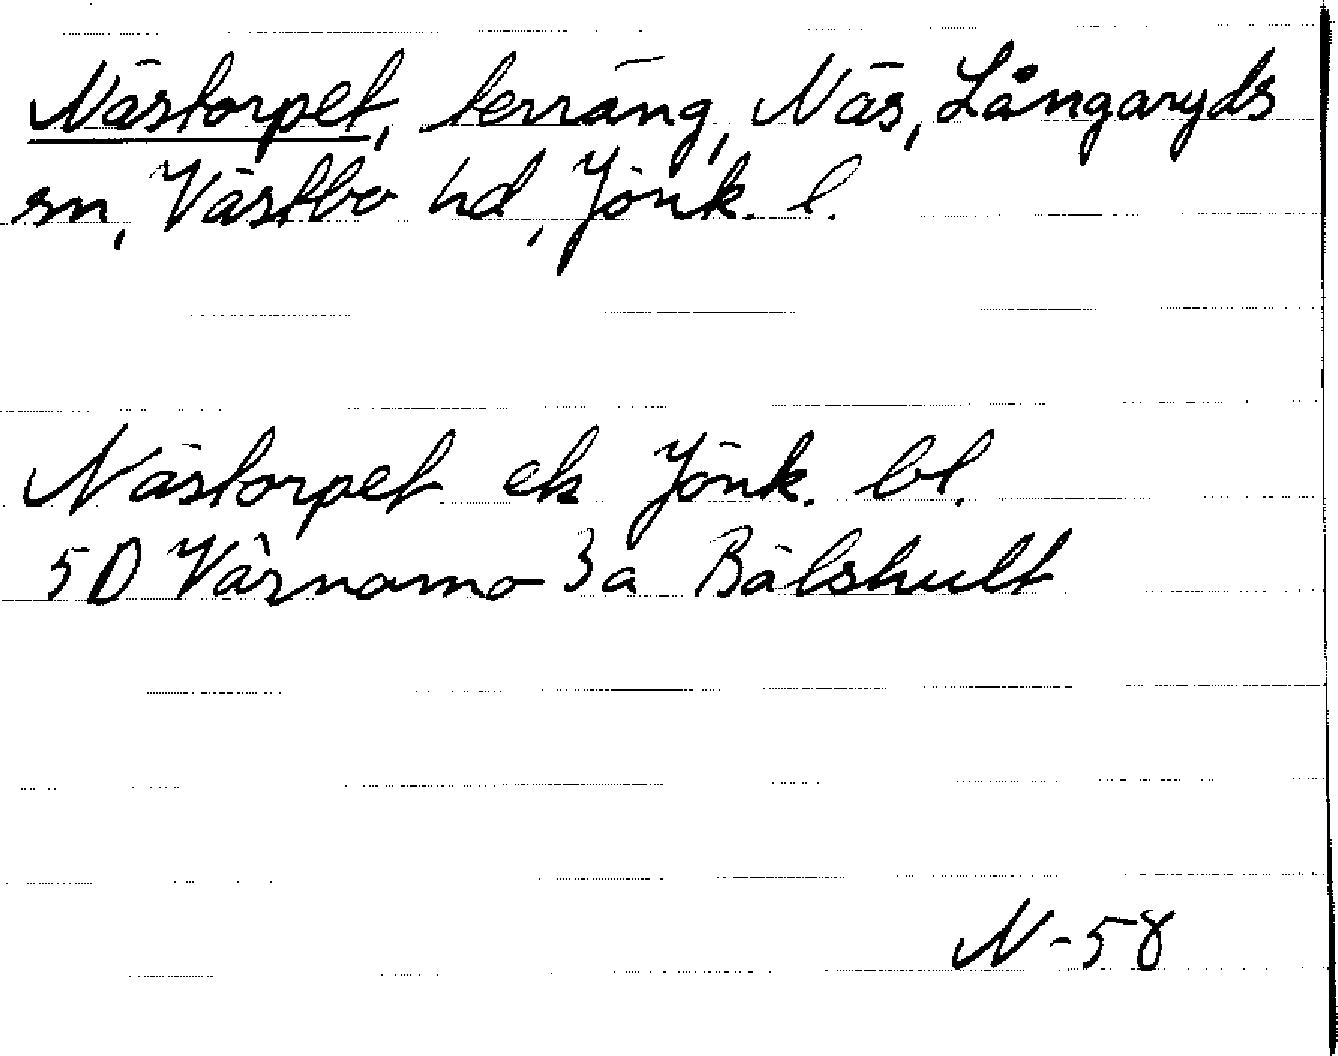 Nästorpet, terräng, Näs, Långaryds
sn, Västbo hd, Jönk. l.
Nästorpet ek Jönk. bl.
5D Värnamo 3a Bälshult
N-58